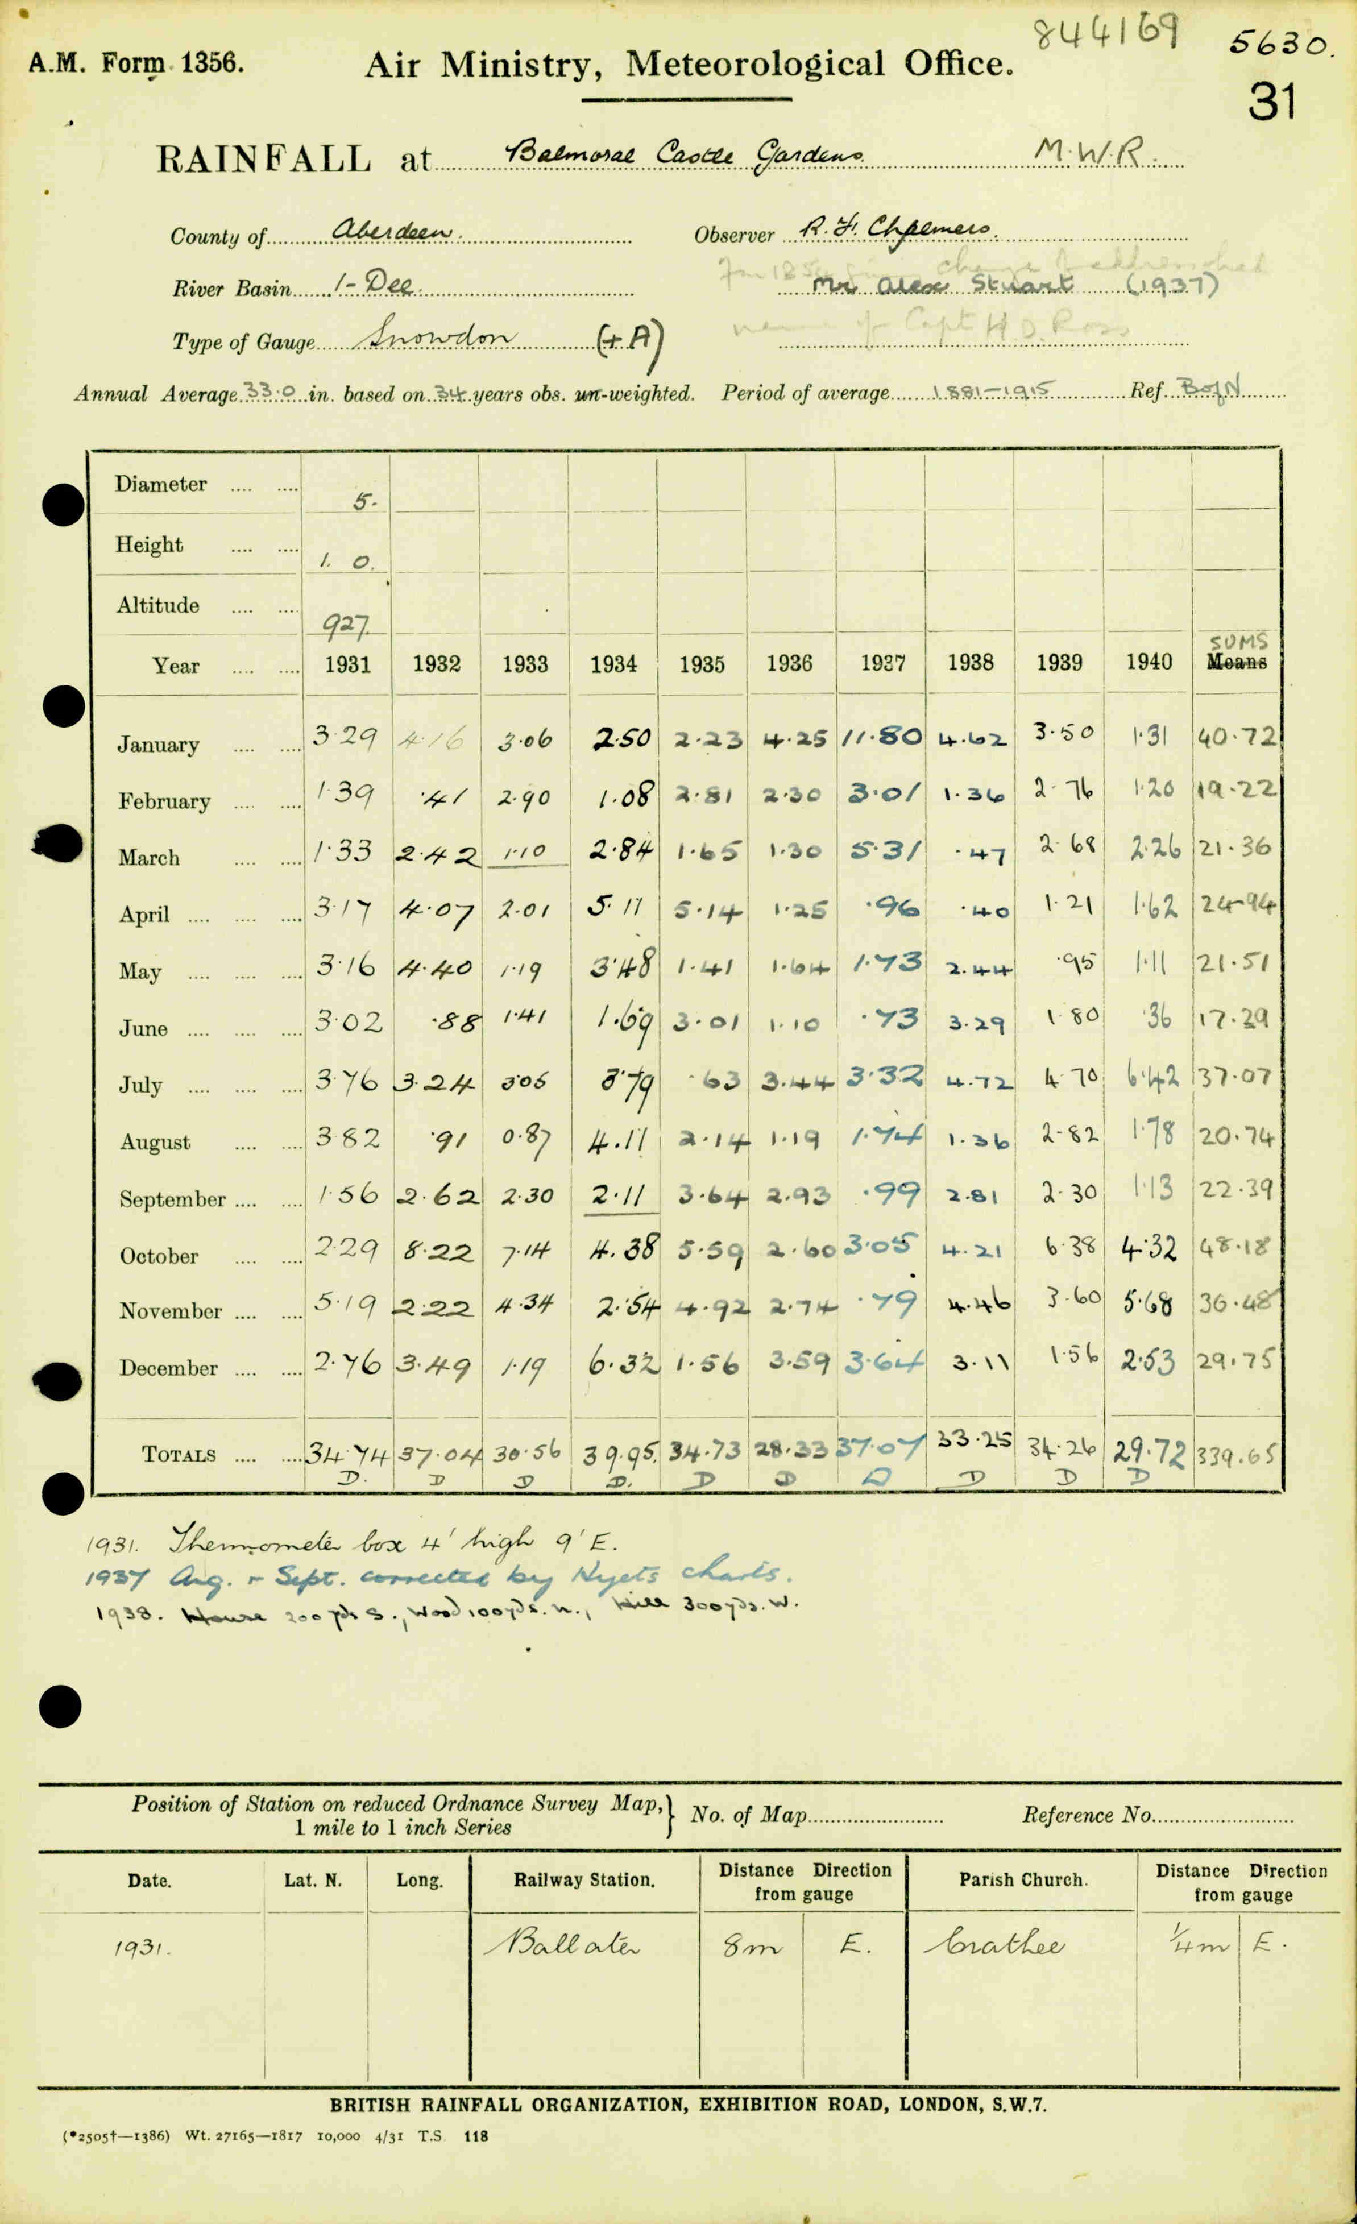 844169 5630.
A.M. Form 1356. Air Ministry, Meteorological Office.
31
RAINFALL at Balmoral Castle Gardens. M.W.R.
County of Aberdeen. Observer R. F. Chalmers.
River Basin 1-Dee Mr Alex Stuart (1937)
Type of Gauge Snowdon (+A) name of Capt H.D. Ross
Annual Average 33.0 in. based on 34 years obs. un-weighted. Period of average 1881-1915 Ref. B of N
Diameter 5.
Height 1. 0.
Altitude 927.
SUMS
Year 1931 1932 1933 1934 1935 1936 1937 1938 1939 1940 Means
January 3.29 4.16 3.06 2.50 2.23 4.25 11.80 4.62 3.50 1.31 40.72
February 1.39 .41 2.90 1.08 2.81 2.30 3.01 1.36 2.76 1.20 19.22
March 1.33 2.42 1.10 2.84 1.65 1.30 5.31 .47 2.68 2.26 21.36
April 3.17 4.07 2.01 5.11 5.14 1.25 .96 .40 1.21 1.62 24.94
May 3.16 4.40 1.19 3.48 1.41 1.64 1.73 2.44 .95 1.11 21.51
June 3.02 .88 1.41 1.69 3.01 1.10 .73 3.29 1.80 .36 17.29
July 3.76 3.24 3.05 3.79 .63 3.44 3.32 4.72 4.70 6.42 37.07
August 3.82 .91 0.87 4.11 2.14 1.19 1.74 1.36 2.82 1.78 20.74
September 1.56 2.62 2.30 2.11 3.64 2.93 .99 2.81 2.30 1.13 22.39
October 2.29 8.22 7.14 4.38 5.59 2.60 3.05 4.21 6.38 4.32 48.18
November 5.19 2.22 4.34 2.54 4.92 2.74 .79 4.46 3.60 5.68 36.48
December 2.76 3.49 1.19 6.32 1.56 3.59 3.64 3.11 1.56 2.53 29.75
TOTALS 34.74 37.04 30.56 39.95. 34.73 28.33 37.07 33.25 34.26 29.72 339.65
D. D D D. D D D D D D
1931. Thermometer box 4' high 9' E.
1937 Aug. + Sept. corrected by Hyets charts.
1938. House 200 yds S., Wood 100 yds. N., Hill 300 yds. W.
Position of Station on reduced Ordnance Survey Map, } No. of Map Reference No.
1 mile to 1 inch Series
Date. Lat. N. Long. Railway Station. Distance Direction from gauge Parish Church. Distance Direction from gauge
1931. Ballater 8m E. Crathee ¼m E.
BRITISH RAINFALL ORGANIZATION, EXHIBITION ROAD, LONDON, S.W.7.
(*2505†—1386) Wt. 27165—1817 10,000 4/31 T.S. 118